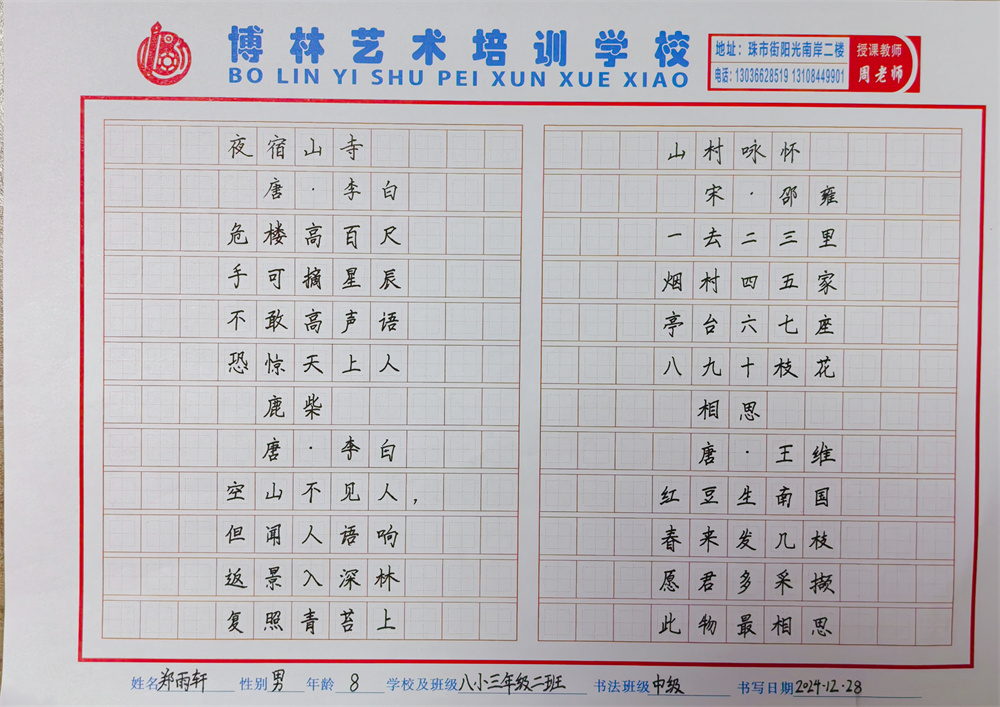 博林艺术培训学校
BO LIN YI SHU PEI XUN XUE XIAO
地址：珠市街阳光南岸二楼
电话：13036628519 13108449901
授课教师
周老师
夜宿山寺
唐·李白
危楼高百尺
手可摘星辰
不敢高声语
恐惊天上人
鹿柴
唐·李白
空山不见人，
但闻人语响
返景入深林
复照青苔上
山村咏怀
宋·邵雍
一去二三里
烟村四五家
亭台六七座
八九十枝花
相思
唐·王维
红豆生南国
春来发几枝
愿君多采撷
此物最相思
姓名郑雨轩 性别男 年龄8 学校及班级八小三年级二班 书法班级中级 书写日期2024.12.28